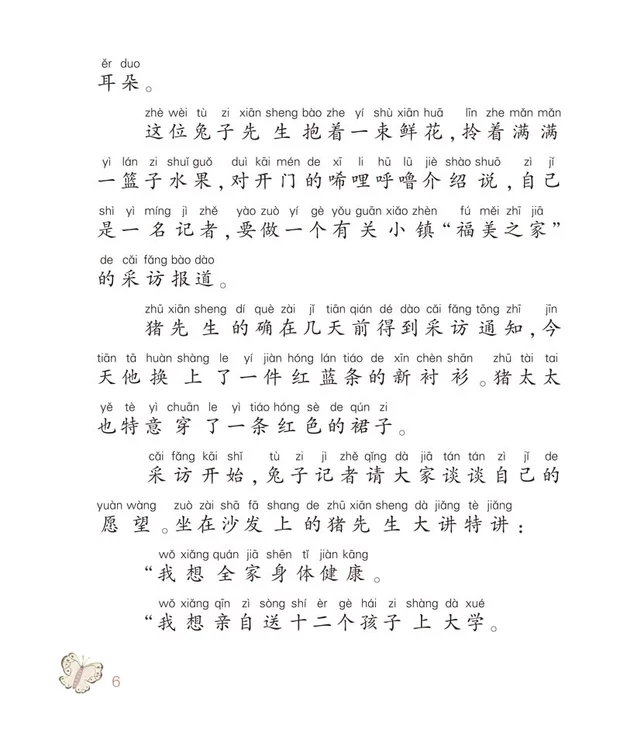 ěr duo
耳朵。
zhè wèi tù zi xiān sheng bào zhe yí shù xiān huā līn zhe mǎn mǎn
这位兔子先生抱着一束鲜花，拎着满满
yì lán zi shuǐ guǒ duì kāi mén de xī li hū lū jiè shào shuō zì jǐ
一篮子水果，对开门的唏哩呼噜介绍说，自己
shì yì míng jì zhě yào zuò yí gè yǒu guān xiǎo zhèn fú měi zhī jiā
是一名记者，要做一个有关小镇“福美之家”
de cǎi fǎng bào dào
的采访报道。
zhū xiān sheng dí què zài jǐ tiān qián dé dào cǎi fǎng tōng zhī jīn
猪先生的确在几天前得到采访通知，今
tiān tā huàn shàng le yí jiàn hóng lán tiáo de xīn chèn shān zhū tài tai
天他换上了一件红蓝条的新衬衫。猪太太
yě tè yì chuān le yì tiáo hóng sè de qún zi
也特意穿了一条红色的裙子。
cǎi fǎng kāi shǐ tù zi jì zhě qǐng dà jiā tán tán zì jǐ de
采访开始，兔子记者请大家谈谈自己的
yuàn wàng zuò zài shā fā shang de zhū xiān sheng dà jiǎng tè jiǎng
愿望。坐在沙发上的猪先生大讲特讲：
wǒ xiǎng quán jiā shēn tǐ jiàn kāng
“我想全家身体健康。
wǒ xiǎng qīn zì sòng shí èr gè hái zi shàng dà xué
“我想亲自送十二个孩子上大学。
6